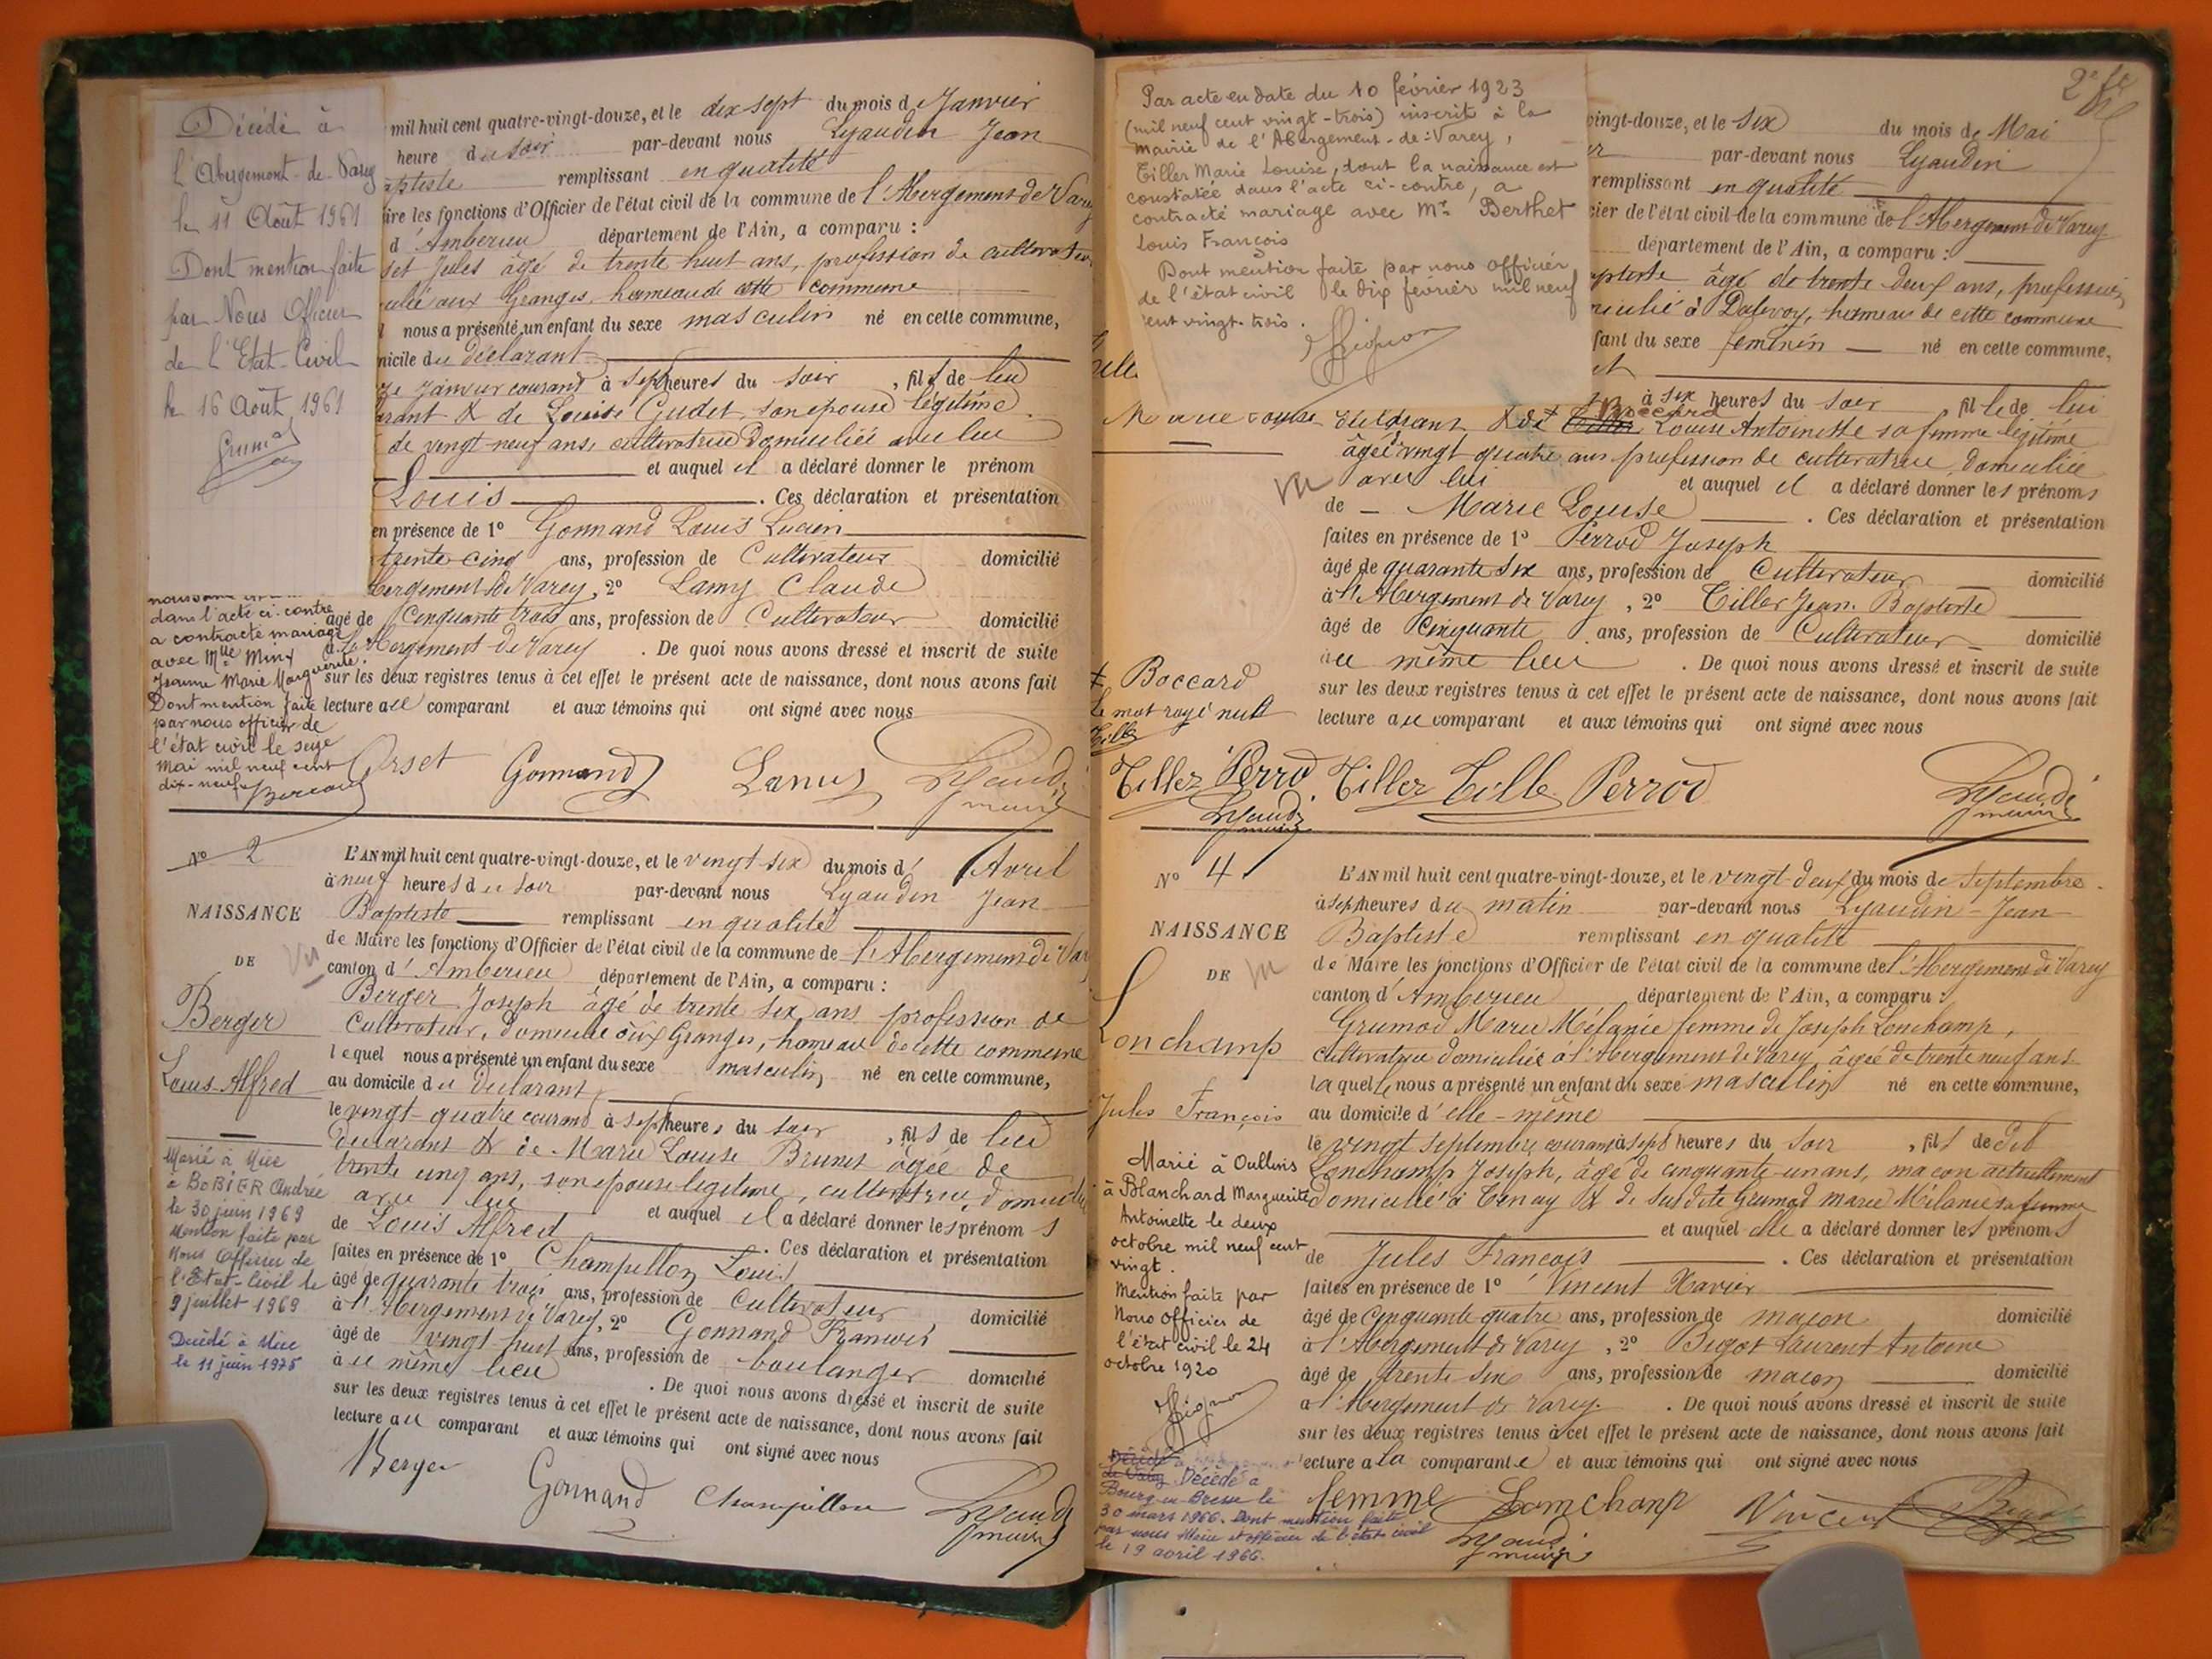 Décédé à
l'Abergement-de-Varey
le 11 Août 1961
Dont mention faite
par Nous Officier
de l'Etat-Civil
le 16 Août 1961
mil huit cent quatre-vingt-douze, et le dix sept du mois de Janvier
heure du soir par-devant nous Lyaudin Jean
aptiste remplissant en qualité
ire les fonctions d'Officier de l'état civil de la commune de l'Abergement de Varey
d'Amberieu département de l'Ain, a comparu :
set Jules âgé de trente huit ans, profession de cultivateur
cilié aux Granges, hameau de cette commune
l nous a présenté un enfant du sexe masculin né en cette commune,
micile du déclarant
ze Janvier courant à sept heures du soir, fils de lui
arant & de Louise Gudet, son épouse légitime
de vingt-neuf ans, cultivatrice domiciliée avec lui
et auquel il a déclaré donner le prénom
Louis. Ces déclaration et présentation
en présence de 1º Gonnand Louis Lucien
trente-cinq ans, profession de Cultivateur domicilié
bergement de Varey, 2º Lamy Claude
âgé de Cinquante trois ans, profession de Cultivateur domicilié
à l'Abergement de Varey. De quoi nous avons dressé et inscrit de suite
sur les deux registres tenus à cet effet le présent acte de naissance, dont nous avons fait
lecture au comparant et aux témoins qui ont signé avec nous
dans l'acte ci-contre
a contracté mariage
avec Mlle Minx
Jeanne Marie Marguerite.
Dont mention faite
par nous officier de
l'état civil le seize
Mai mil neuf cent
dix-neuf
Orset Gonnand Lamy Lyaudin
maire
Nº 2
NAISSANCE
DE
Vu
Berger
Louis Alfred
L'AN mil huit cent quatre-vingt-douze, et le vingt six du mois d'Avril
à neuf heures du soir par-devant nous Lyaudin Jean
Baptiste remplissant en qualité
de Maire les fonctions d'Officier de l'état civil de la commune de l'Abergement de Var
canton d'Amberieu département de l'Ain, a comparu :
Berger Joseph âgé de trente six ans profession de
Cultivateur, domicilié aux Granges, hameau de cette commune
lequel nous a présenté un enfant du sexe masculin né en cette commune,
au domicile du déclarant
le vingt-quatre courant à sept heures du soir, fils de lui
déclarant & de Marie Louise Brunet âgée de
trente cinq ans, son épouse légitime, cultivatrice, domicilié
avec lui et auquel il a déclaré donner les prénoms
de Louis Alfred. Ces déclaration et présentation
faites en présence de 1º Champillon Louis
âgé de quarante trois ans, profession de Cultivateur domicilié
à l'Abergement de Varey, 2º Gonnand François
âgé de vingt huit ans, profession de boulanger domicilié
à ce même lieu. De quoi nous avons dressé et inscrit de suite
sur les deux registres tenus à cet effet le présent acte de naissance, dont nous avons fait
lecture au comparant et aux témoins qui ont signé avec nous
Marié à Nice
à BOBIER Andrée
le 30 juin 1969
Mention faite par
Nous Officier de
l'Etat-Civil le
9 juillet 1969
Décédé à Nice
le 11 juin 1975
Berger Gonnand Champillon Lyaudin
maire
2e ft
Par acte en date du 10 février 1923
(mil neuf cent vingt-trois) inscrit à la
mairie de l'Abergement-de-Varey,
Tiller Marie Louise, dont la naissance est
constatée dans l'acte ci-contre, a
contracté mariage avec Mr Berthet
Louis François
Dont mention faite par nous officier
de l'état civil le dix février mil neuf
cent vingt-trois.
vingt-douze, et le six du mois de Mai
par-devant nous Lyaudin
remplissant en qualité
cier de l'état civil de la commune de l'Abergement de Varey
département de l'Ain, a comparu :
aptiste âgé de trente deux ans, profession
micilié à Dalivoy, hameau de cette commune
fant du sexe féminin né en cette commune,
à six heures du soir fille de lui
Marie Louise déclarant & de ≠ Boccard Louise Antoinette sa femme légitime
âgée vingt quatre ans profession de cultivatrice domiciliée
avec lui et auquel il a déclaré donner les prénoms
de Marie Louise. Ces déclaration et présentation
faites en présence de 1º Perrod Joseph
âgé de quarante six ans, profession de Cultivateur domicilié
à l'Abergement de Varey, 2º Tiller Jean Baptiste
âgé de Cinquante ans, profession de Cultivateur domicilié
à ce même lieu. De quoi nous avons dressé et inscrit de suite
sur les deux registres tenus à cet effet le présent acte de naissance, dont nous avons fait
lecture au comparant et aux témoins qui ont signé avec nous
≠ Boccard
le mot rayé nul
Tiller
Tiller Perrod Tiller Tiller Perrod Lyaudin
Lyaudin maire
maire
Nº 4
NAISSANCE
DE
Vu
Lonchamp
Jules François
L'AN mil huit cent quatre-vingt-douze, et le vingt-deux du mois de Septembre
à sept heures du matin par-devant nous Lyaudin Jean
Baptiste remplissant en qualité
de Maire les fonctions d'Officier de l'état civil de la commune de l'Abergement de Varey
canton d'Amberieu département de l'Ain, a comparu :
Grumod Marie Mélanie femme de Joseph Lonchamp,
cultivatrice domiciliée à l'Abergement de Varey, âgée de trente neuf ans
laquelle nous a présenté un enfant du sexe masculin né en cette commune,
au domicile d'elle-même
le vingt septembre courant à sept heures du soir, fils de dit
Lonchamp Joseph, âgé de cinquante-un ans, maçon actuellement
domicilié à Tenay & de susdite Grumod marie Mélanie sa femme
et auquel elle a déclaré donner les prénoms
de Jules François. Ces déclaration et présentation
faites en présence de 1º Vincent Xavier
âgé de Cinquante quatre ans, profession de maçon domicilié
à l'Abergement de Varey, 2º Bigot Laurent Antoine
âgé de trente-six ans, profession de maçon domicilié
à l'Abergement de Varey. De quoi nous avons dressé et inscrit de suite
sur les deux registres tenus à cet effet le présent acte de naissance, dont nous avons fait
lecture à la comparante et aux témoins qui ont signé avec nous
Marié à Oullins
à Blanchard Marguerite
Antoinette le deux
octobre mil neuf cent
vingt.
Mention faite par
Nous officier de
l'état civil le 24
octobre 1920
Décédé à
de Varey Décédé à
Bourg-en-Bresse le
30 mars 1966. Dont mention faite
par nous Maire et officier de l'état civil
le 19 avril 1966.
femme Lomchamp Vincent Bigot
Lyaudin
maire